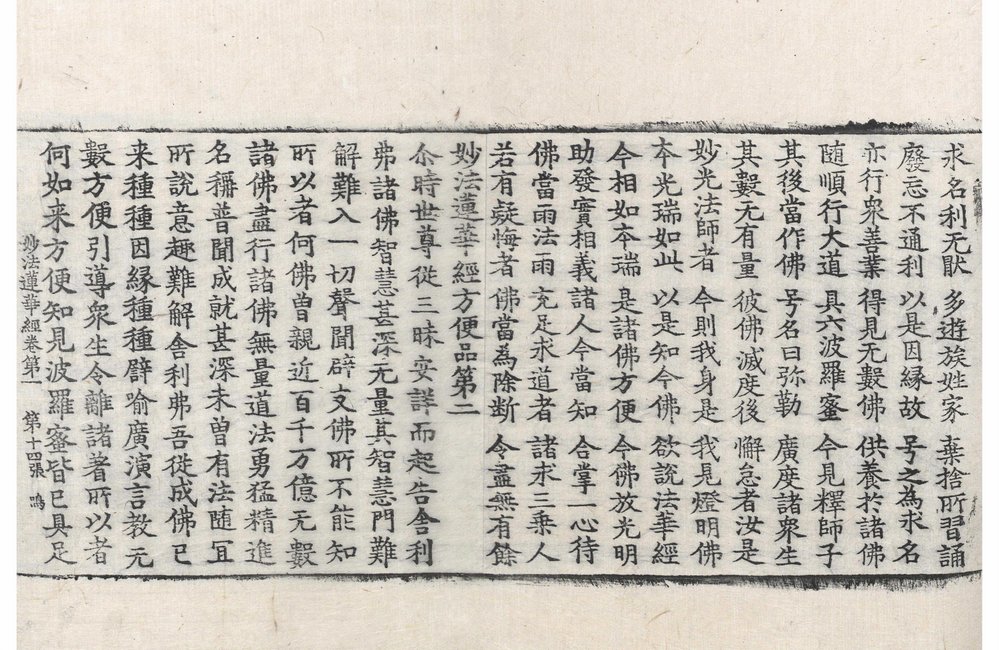 求名利无猒　多遊族姓家　棄捨所習誦
癈忘不通利　以是因縁故　号之為求名
亦行衆善業　得見无數佛　供養於諸佛
随順行大道　具六波羅蜜　今見釋師子
其後當作佛　号名曰弥勒　廣度諸衆生
其數无有量　彼佛滅度後　懈怠者汝是
妙光法師者　今則我身是　我見燈明佛
本光瑞如此　以是知今佛　欲說法華經
今相如本瑞　是諸佛方便　今佛放光明
助發實相義　諸人今當知　合掌一心待
佛當雨法雨　充足求道者　諸求三乗人
若有疑悔者　佛當為除断　令盡無有餘
妙法蓮華經方便品第二
尒時世尊從三昧安詳而起告舍利
弗諸佛智慧甚深无量其智慧門難
解難入一切聲聞辟支佛所不能知
所以者何佛曾親近百千万億无數
諸佛盡行諸佛無量道法勇猛精進
名稱普聞成就甚深未曽有法随冝
所說意趣難解舍利弗吾從成佛已
来種種因縁種種譬喻廣演言教无
數方便引導衆生令離諸著所以者
何如来方便知見波羅蜜皆已具足
妙法蓮華經卷第一　第十四張　鳴